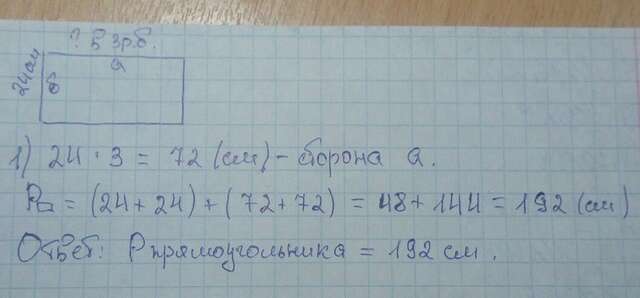 ? в 3р.б.
а
24см
б
1) 24 · 3 = 72 (см) - сторона а.
P▭ = (24 + 24) + (72 + 72) = 48 + 144 = 192 (см)
Ответ: Pпрямоугольника = 192 см.